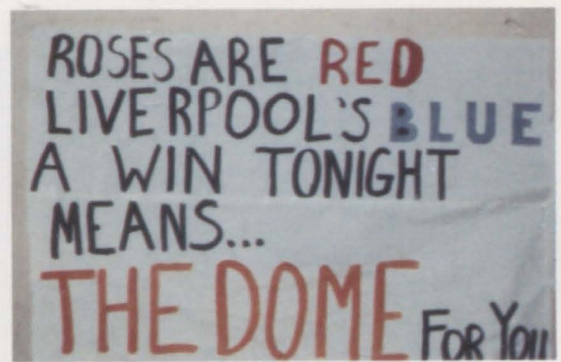 ROSES ARE RED
LIVERPOOL'S BLUE
A WIN TONIGHT
MEANS...
THE DOME FOR YOU